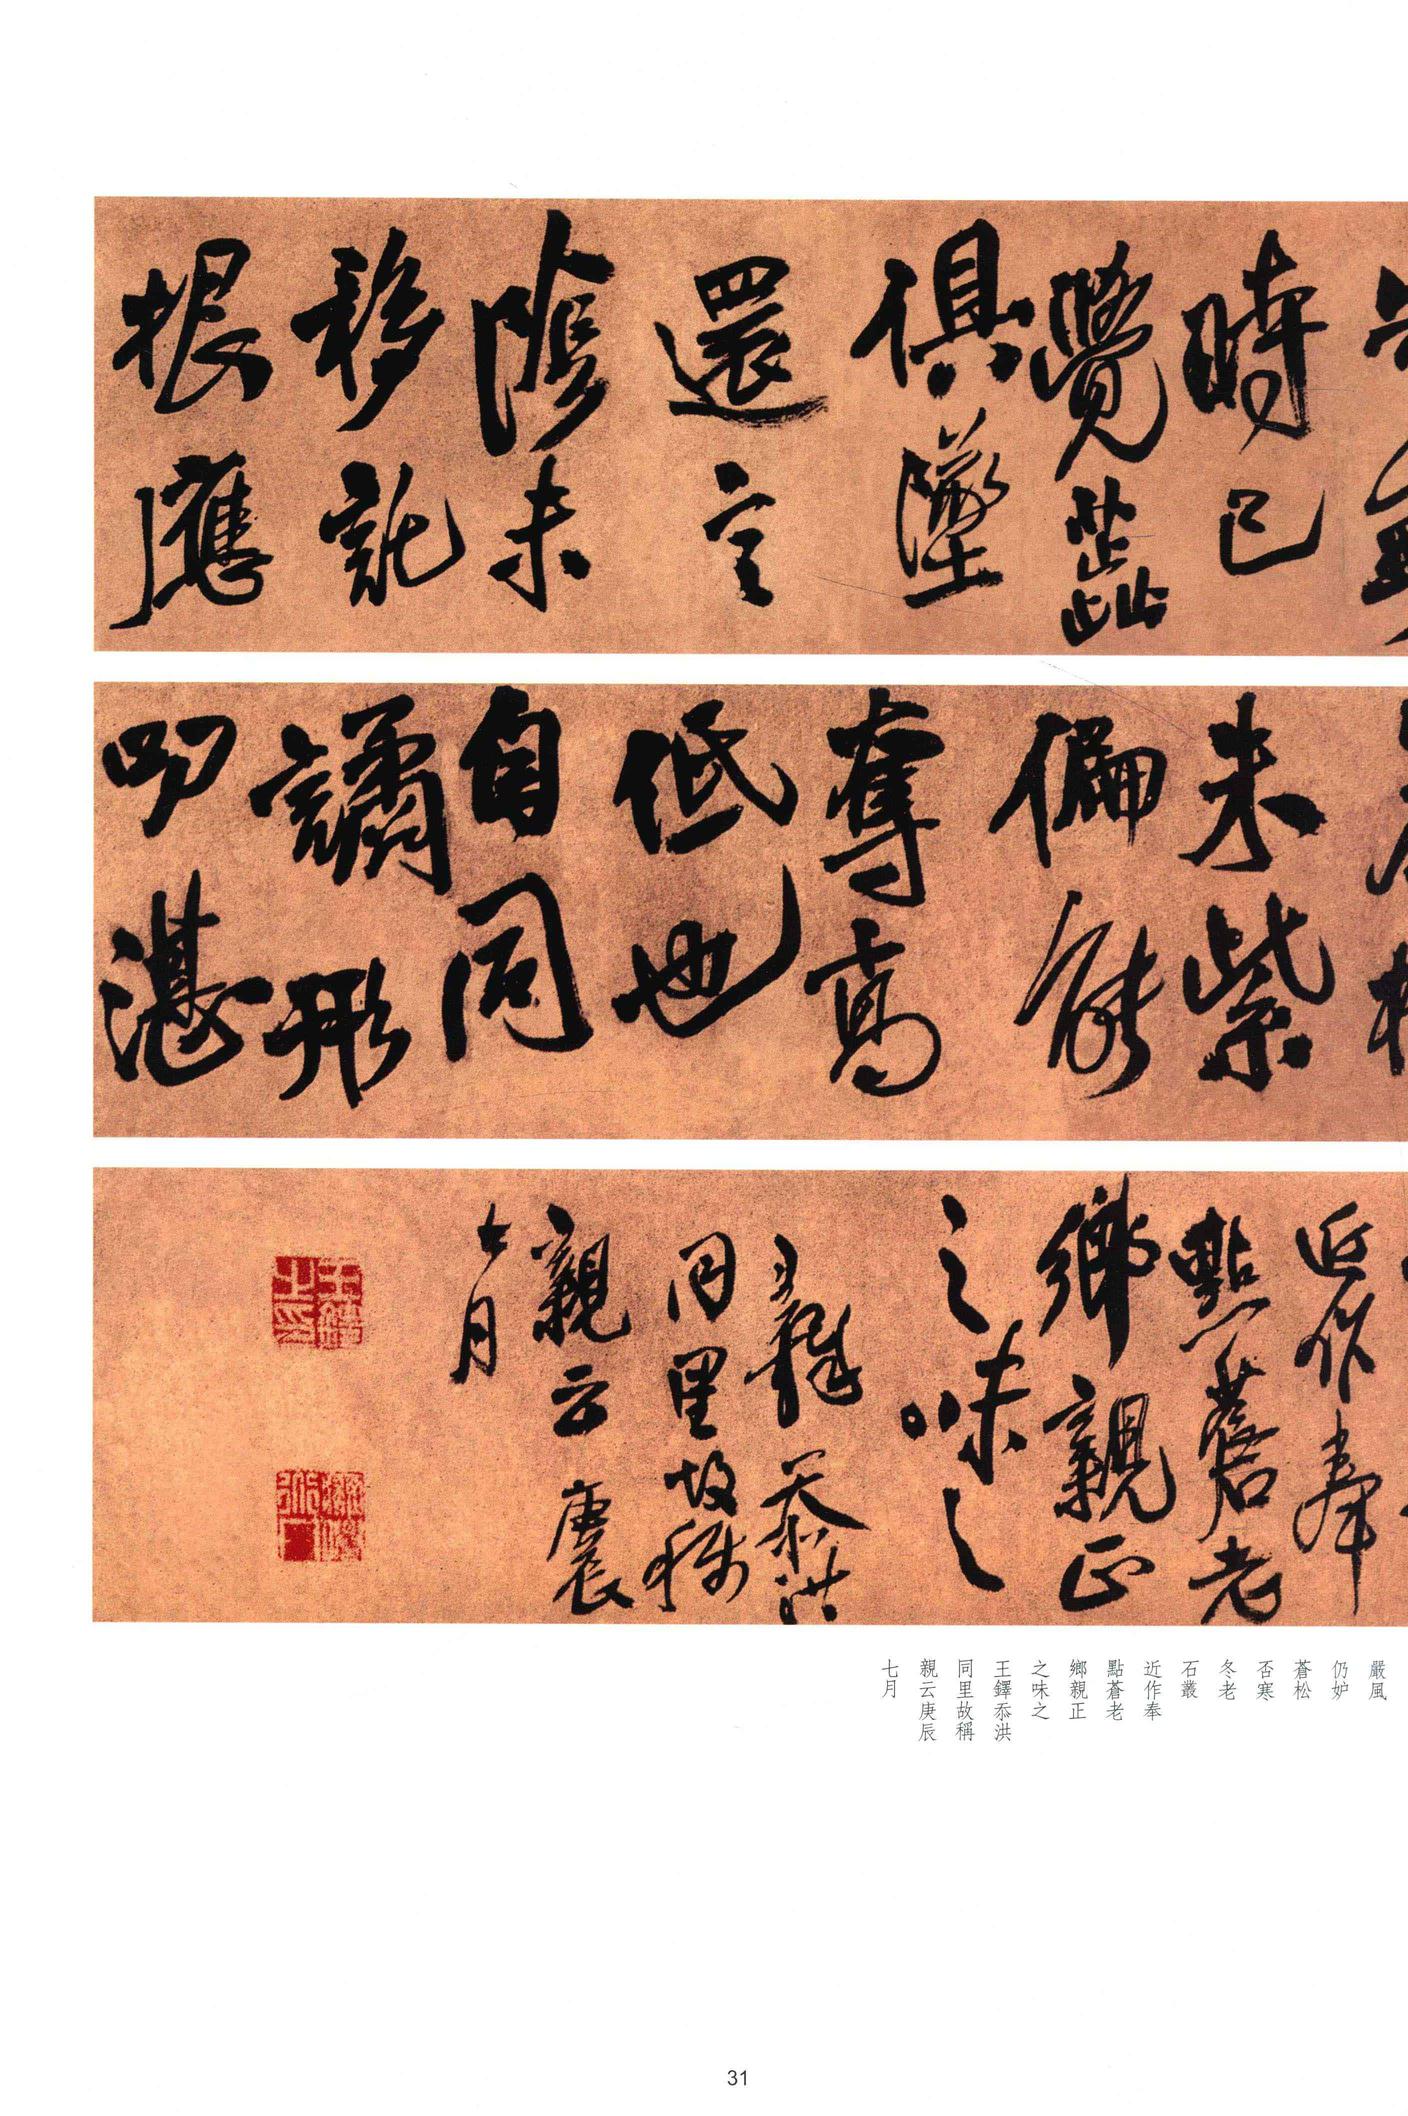 時已
覺茈
俱墜
還言
陰未
移託
根應
未紫
偏能
奪高
低也
自同
譎形
叩湛
近作奉
點蒼老
鄉親正
之味之
王鐸忝洪
同里故稱
親云庚辰
七月
王鐸之印
嚴風
仍妒
蒼松
否寒
冬老
石叢
近作奉
點蒼老
鄉親正
之味之
王鐸忝洪
同里故稱
親云庚辰
七月
31